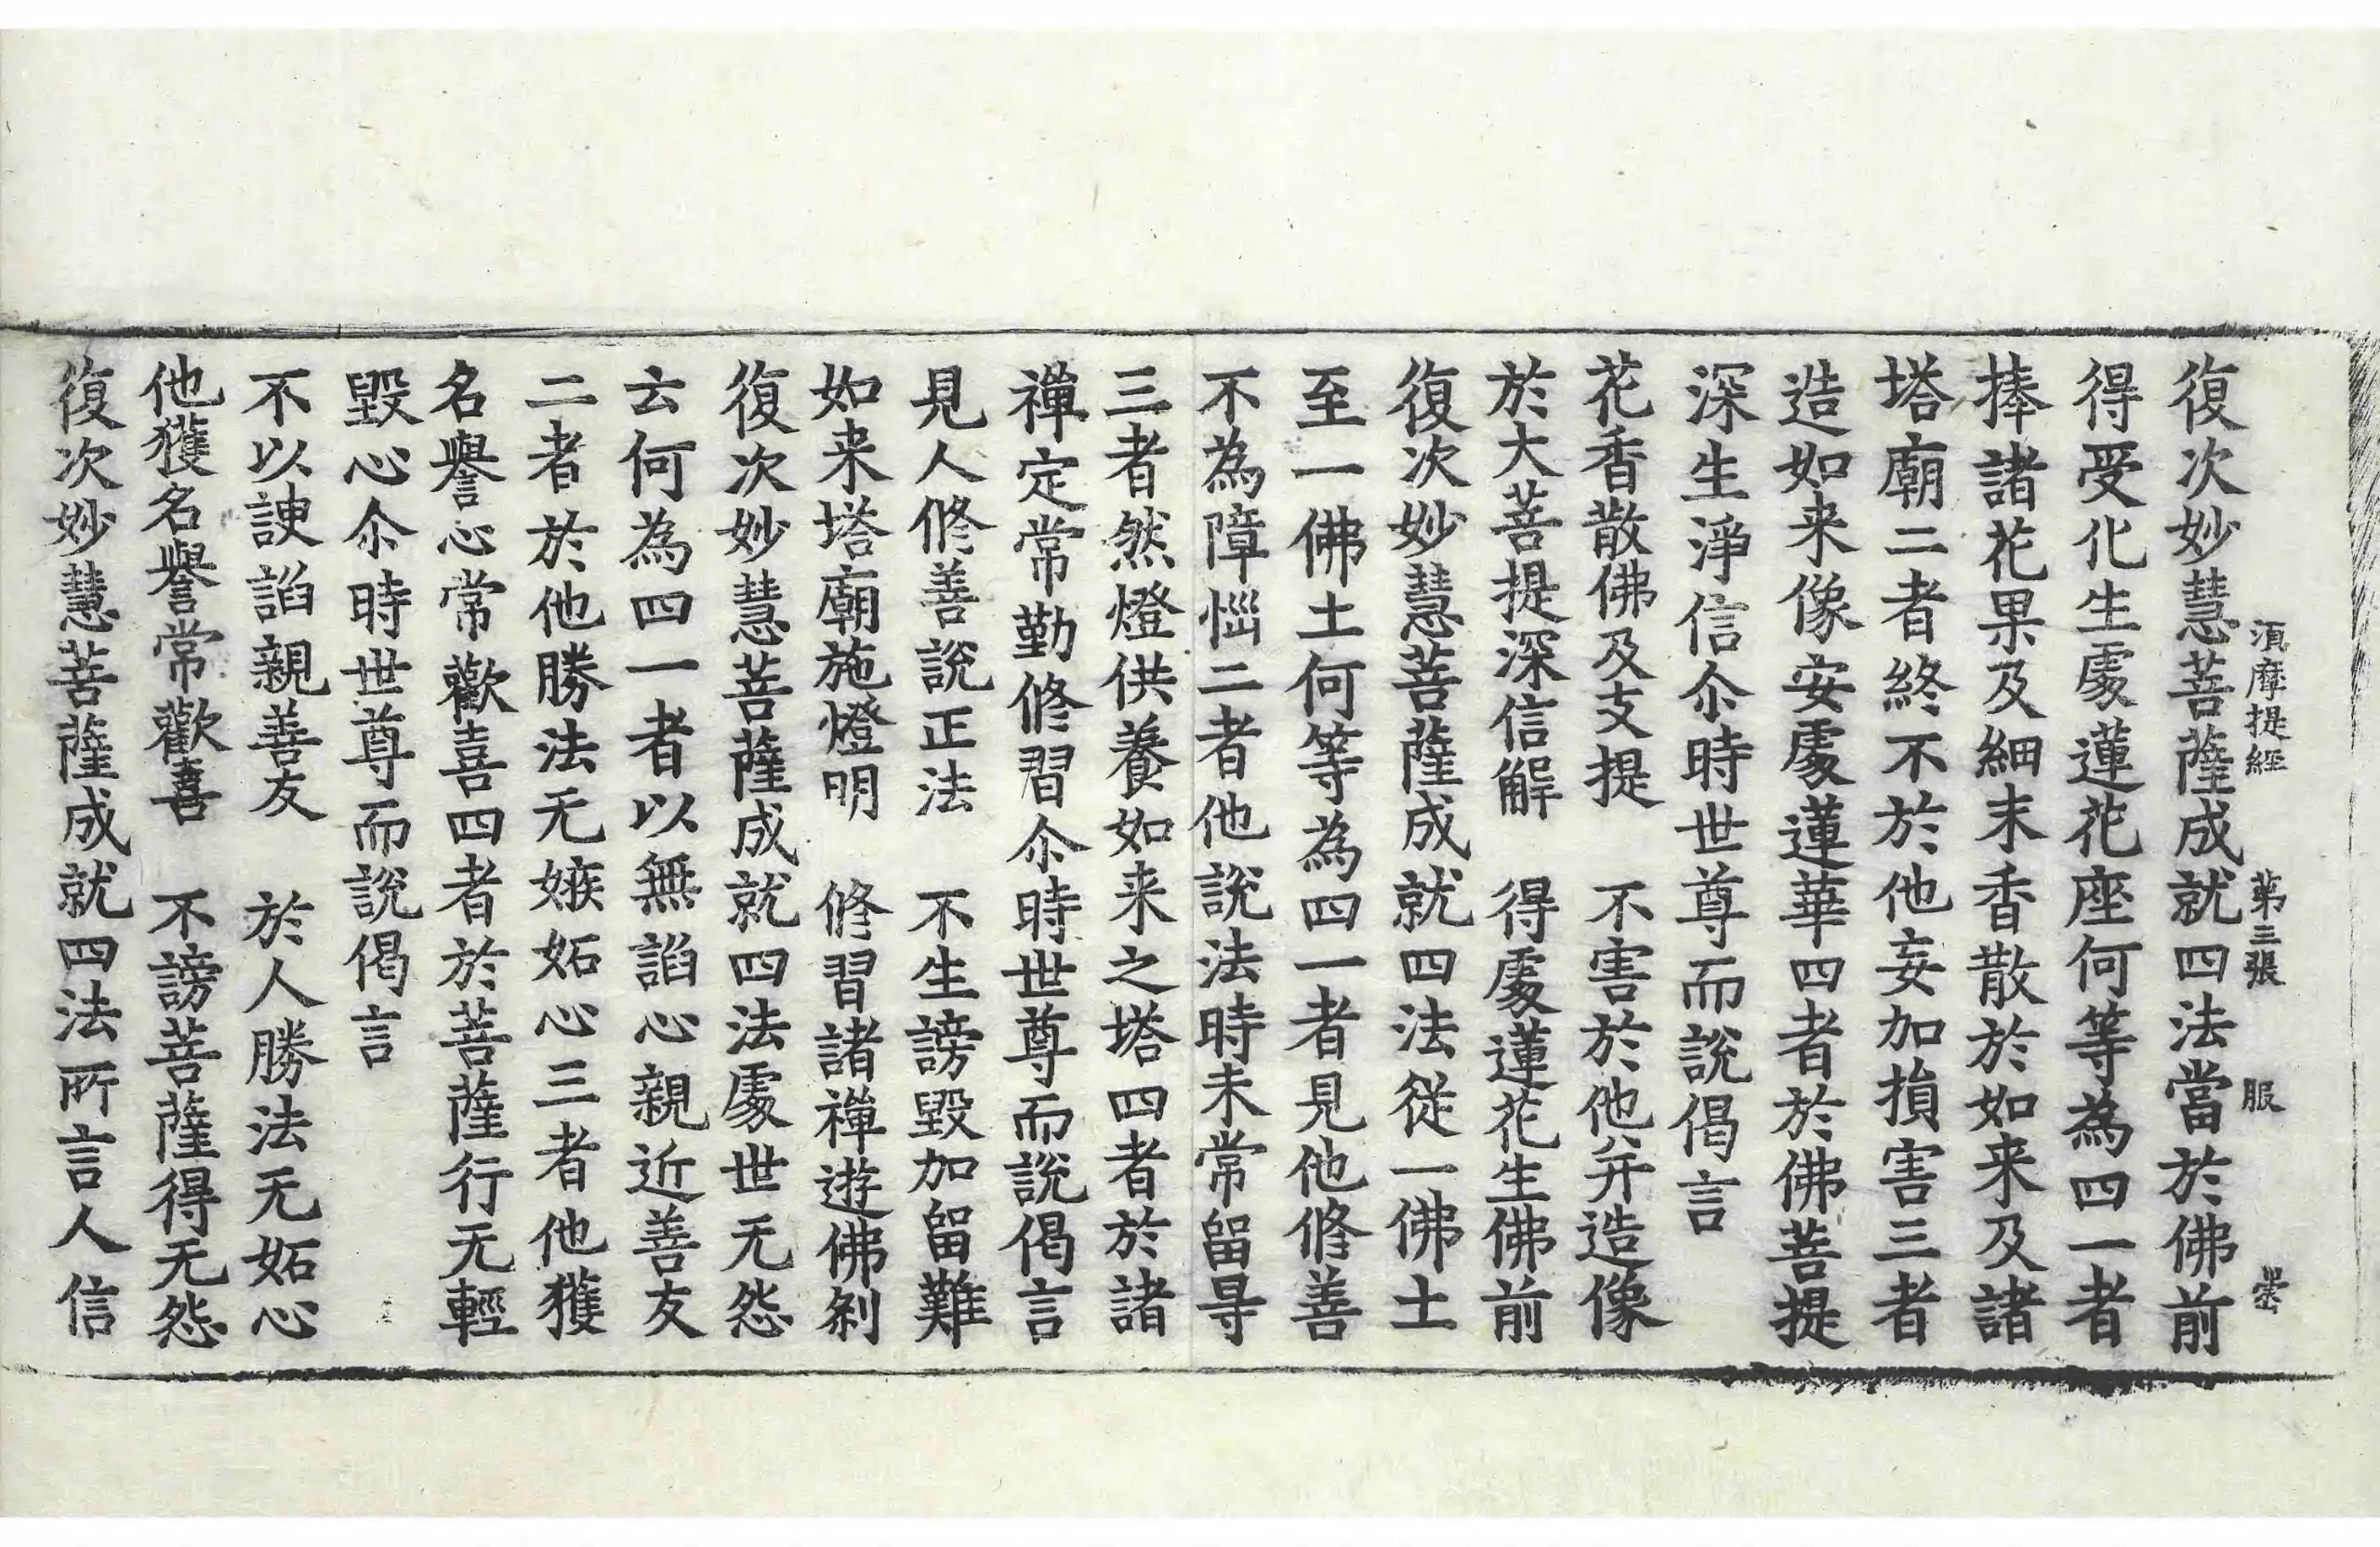 須摩提經 第三張 服
復次妙慧菩薩成就四法當於佛前
得受化生處蓮花座何等為四一者
捧諸花果及細末香散於如来及諸
塔廟二者終不於他妄加損害三者
造如来像安處蓮華四者於佛菩提
深生淨信尒時世尊而說偈言
花香散佛及支提　不害於他并造像
於大菩提深信解　得處蓮花生佛前
復次妙慧菩薩成就四法從一佛土
至一佛土何等為四一者見他修善
不為障惱二者他說法時未常留㝵
三者然燈供養如来之塔四者於諸
禪定常勤修習尒時世尊而說偈言
見人修善說正法　不生謗毀加留難
如来塔廟施燈明　修習諸禪遊佛剎
復次妙慧菩薩成就四法處世无怨
云何為四一者以無諂心親近善友
二者於他勝法无嫉妬心三者他獲
名譽心常歡喜四者於菩薩行无輕
毀心尒時世尊而說偈言
不以諛諂親善友　於人勝法无妬心
他獲名譽常歡喜　不謗菩薩得无怨
復次妙慧菩薩成就四法所言人信